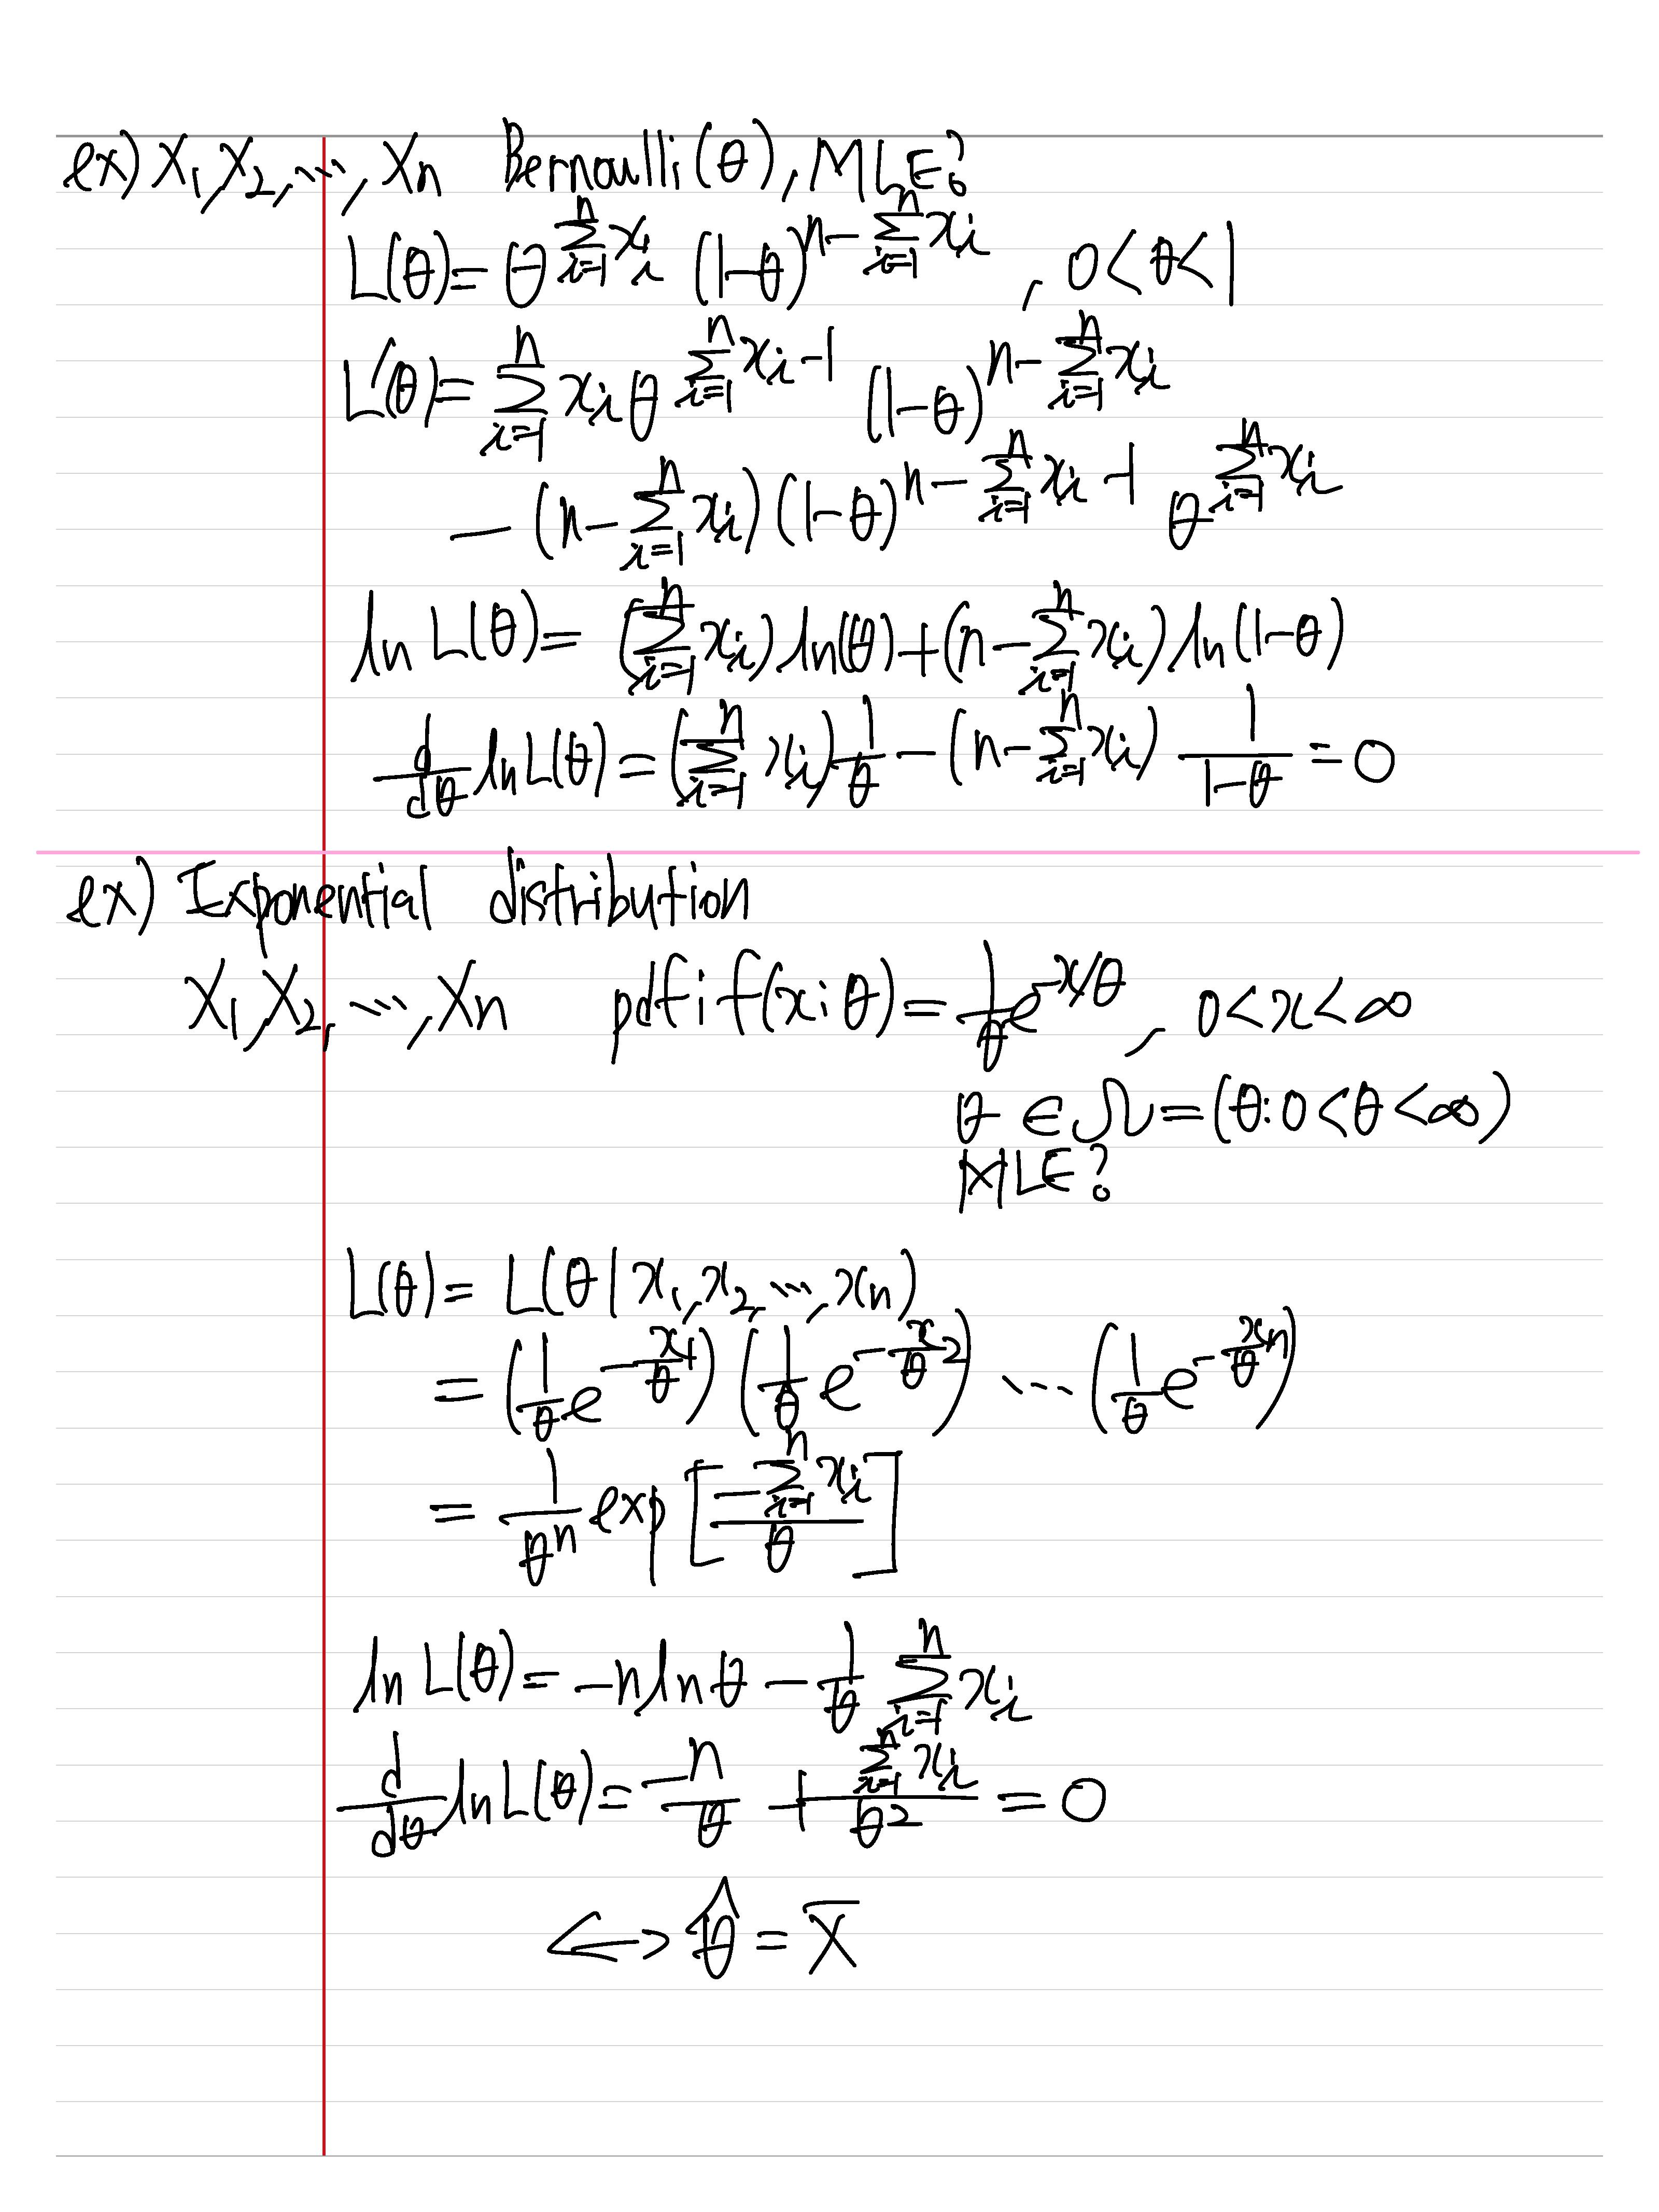 ex) X₁, X₂, ⋯, Xn Bernoulli(θ), MLE?
L(θ) = θ^{∑_{i=1}^{n} xᵢ} (1-θ)^{n-∑_{i=1}^{n} xᵢ}, 0<θ<1
L'(θ) = ∑_{i=1}^{n} xᵢ θ^{∑_{i=1}^{n} xᵢ-1} (1-θ)^{n-∑_{i=1}^{n} xᵢ}
- (n-∑_{i=1}^{n} xᵢ) (1-θ)^{n-∑_{i=1}^{n} xᵢ-1} θ^{∑_{i=1}^{n} xᵢ}
ln L(θ) = (∑_{i=1}^{n} xᵢ) ln(θ) + (n-∑_{i=1}^{n} xᵢ) ln(1-θ)
d/dθ ln L(θ) = (∑_{i=1}^{n} xᵢ) 1/θ - (n-∑_{i=1}^{n} xᵢ) 1/(1-θ) = 0
ex) Exponential distribution
X₁, X₂, ⋯, Xn pdf; f(x; θ) = 1/θ e^{-x/θ}, 0<x<∞
θ ∈ Ω = (θ: 0<θ<∞)
MLE?
L(θ) = L(θ | x₁, x₂, ⋯, xn)
= (1/θ e^{-x₁/θ}) (1/θ e^{-x₂/θ}) ⋯ (1/θ e^{-xn/θ})
= 1/θⁿ exp [-∑_{i=1}^{n} xᵢ / θ]
ln L(θ) = -n ln θ - 1/θ ∑_{i=1}^{n} xᵢ
d/dθ ln L(θ) = -n/θ + ∑_{i=1}^{n} xᵢ / θ² = 0
⟺ θ̂ = X̄